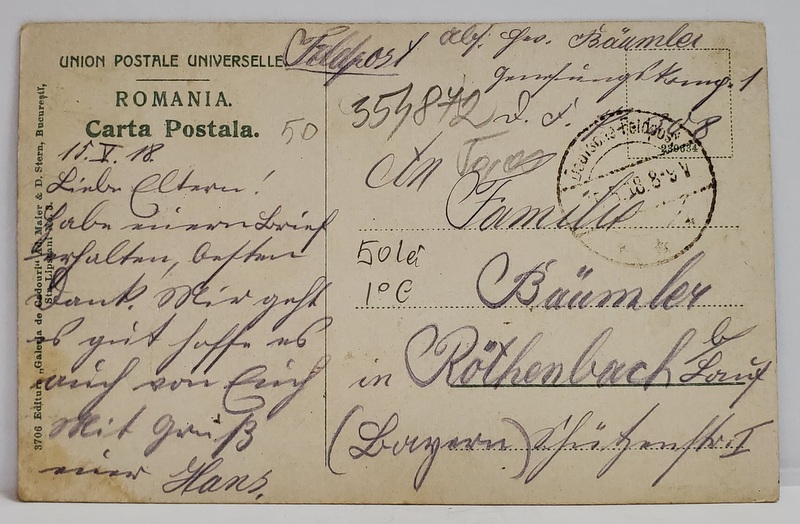 UNION POSTALE UNIVERSELLE
ROMANIA.
Carta Postala.
3706 Editura „Galeria de Tablouri" Ad. Maier & D. Stern, Bucureşti,
Str. Lipscani No. 3.
Feldpost
Abs. Bäumler
Genesungskomp. 1
354872
50
Deutsche Feldpost
18. 8-9 V
239634
15. V. 18.
Liebe Eltern!
habe euern Brief
erhalten, besten
Dank. Mir geht
es gut hoffe es
auch von Euch
Mit Gruß
euer Hans.
An
Familie
Bäumler
in Röthenbach b/ Lauf
(Bayern) Schützenstr. I
50 lei